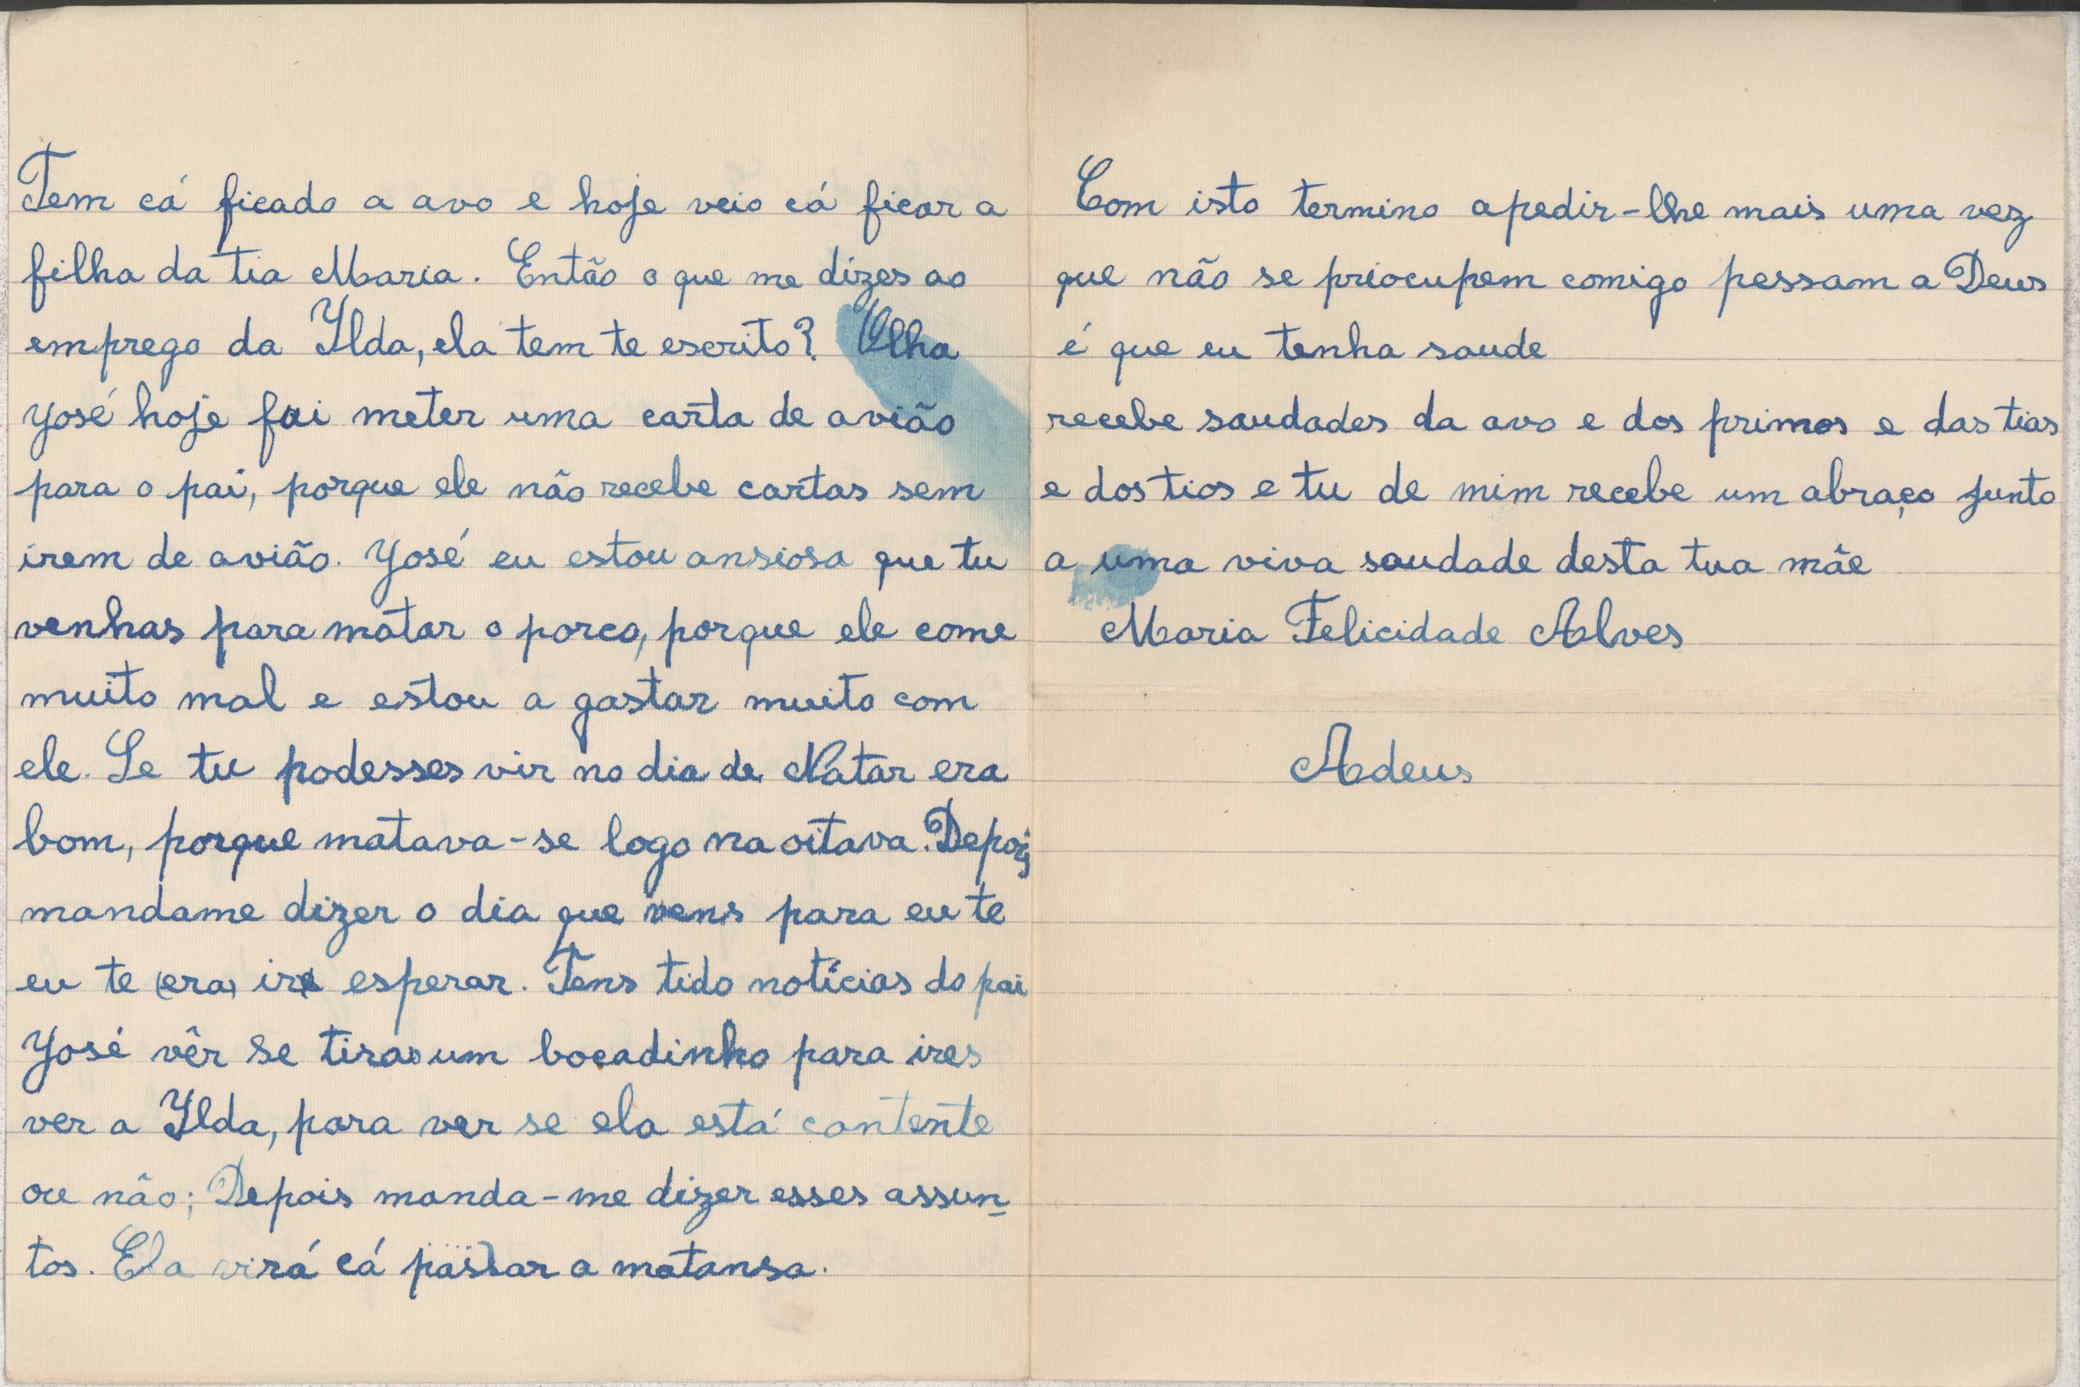 Tem cá ficado a avo e hoje veio cá ficar a
filha da tia Maria. Então o que me dizes ao
emprego da Ylda, ela tem te escrito? Olha
José hoje fui meter uma carta de avião
para o pai, porque ele não recebe cartas sem
irem de avião. José eu estou ansiosa que tu
venhas para matar o porco, porque ele come
muito mal e estou a gastar muito com
ele. Se tu podesses vir no dia de Natar era
bom, porque matava-se logo na oitava. Depois
mandame dizer o dia que vens para eu te
eu te (era) ir esperar. Tens tido notícias do pai
José vêr se tiras um bocadinho para ires
ver a Ylda, para ver se ela está contente
ou não; Depois manda-me dizer esses assun-
tos. Ela virá cá passar a matansa.
Com isto termino apedir-lhe mais uma vez
que não se priocupem comigo pessam a Deus
é que eu tenha saude
recebe saudades da avo e dos primos e das tias
e dos tios e tu de mim recebe um abraço junto
a uma viva saudade desta tua mãe
Maria Felicidade Alves
Adeus